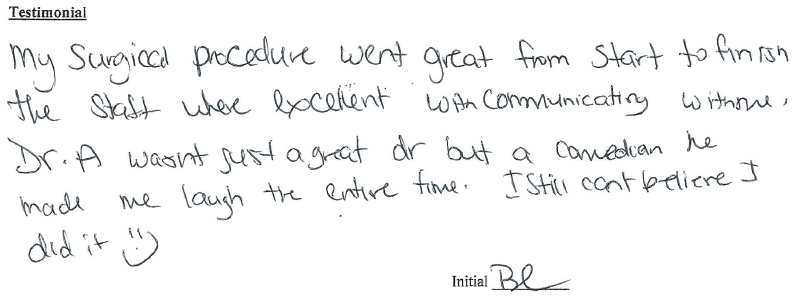 Testimonial
My Surgical procedure went great from Start to finish
the Staff where excellent with Communicating with me,
Dr. A wasnt just a great dr but a comedian he
made me laugh the entire time. I Still cant believe I
did it :)
Initial BL